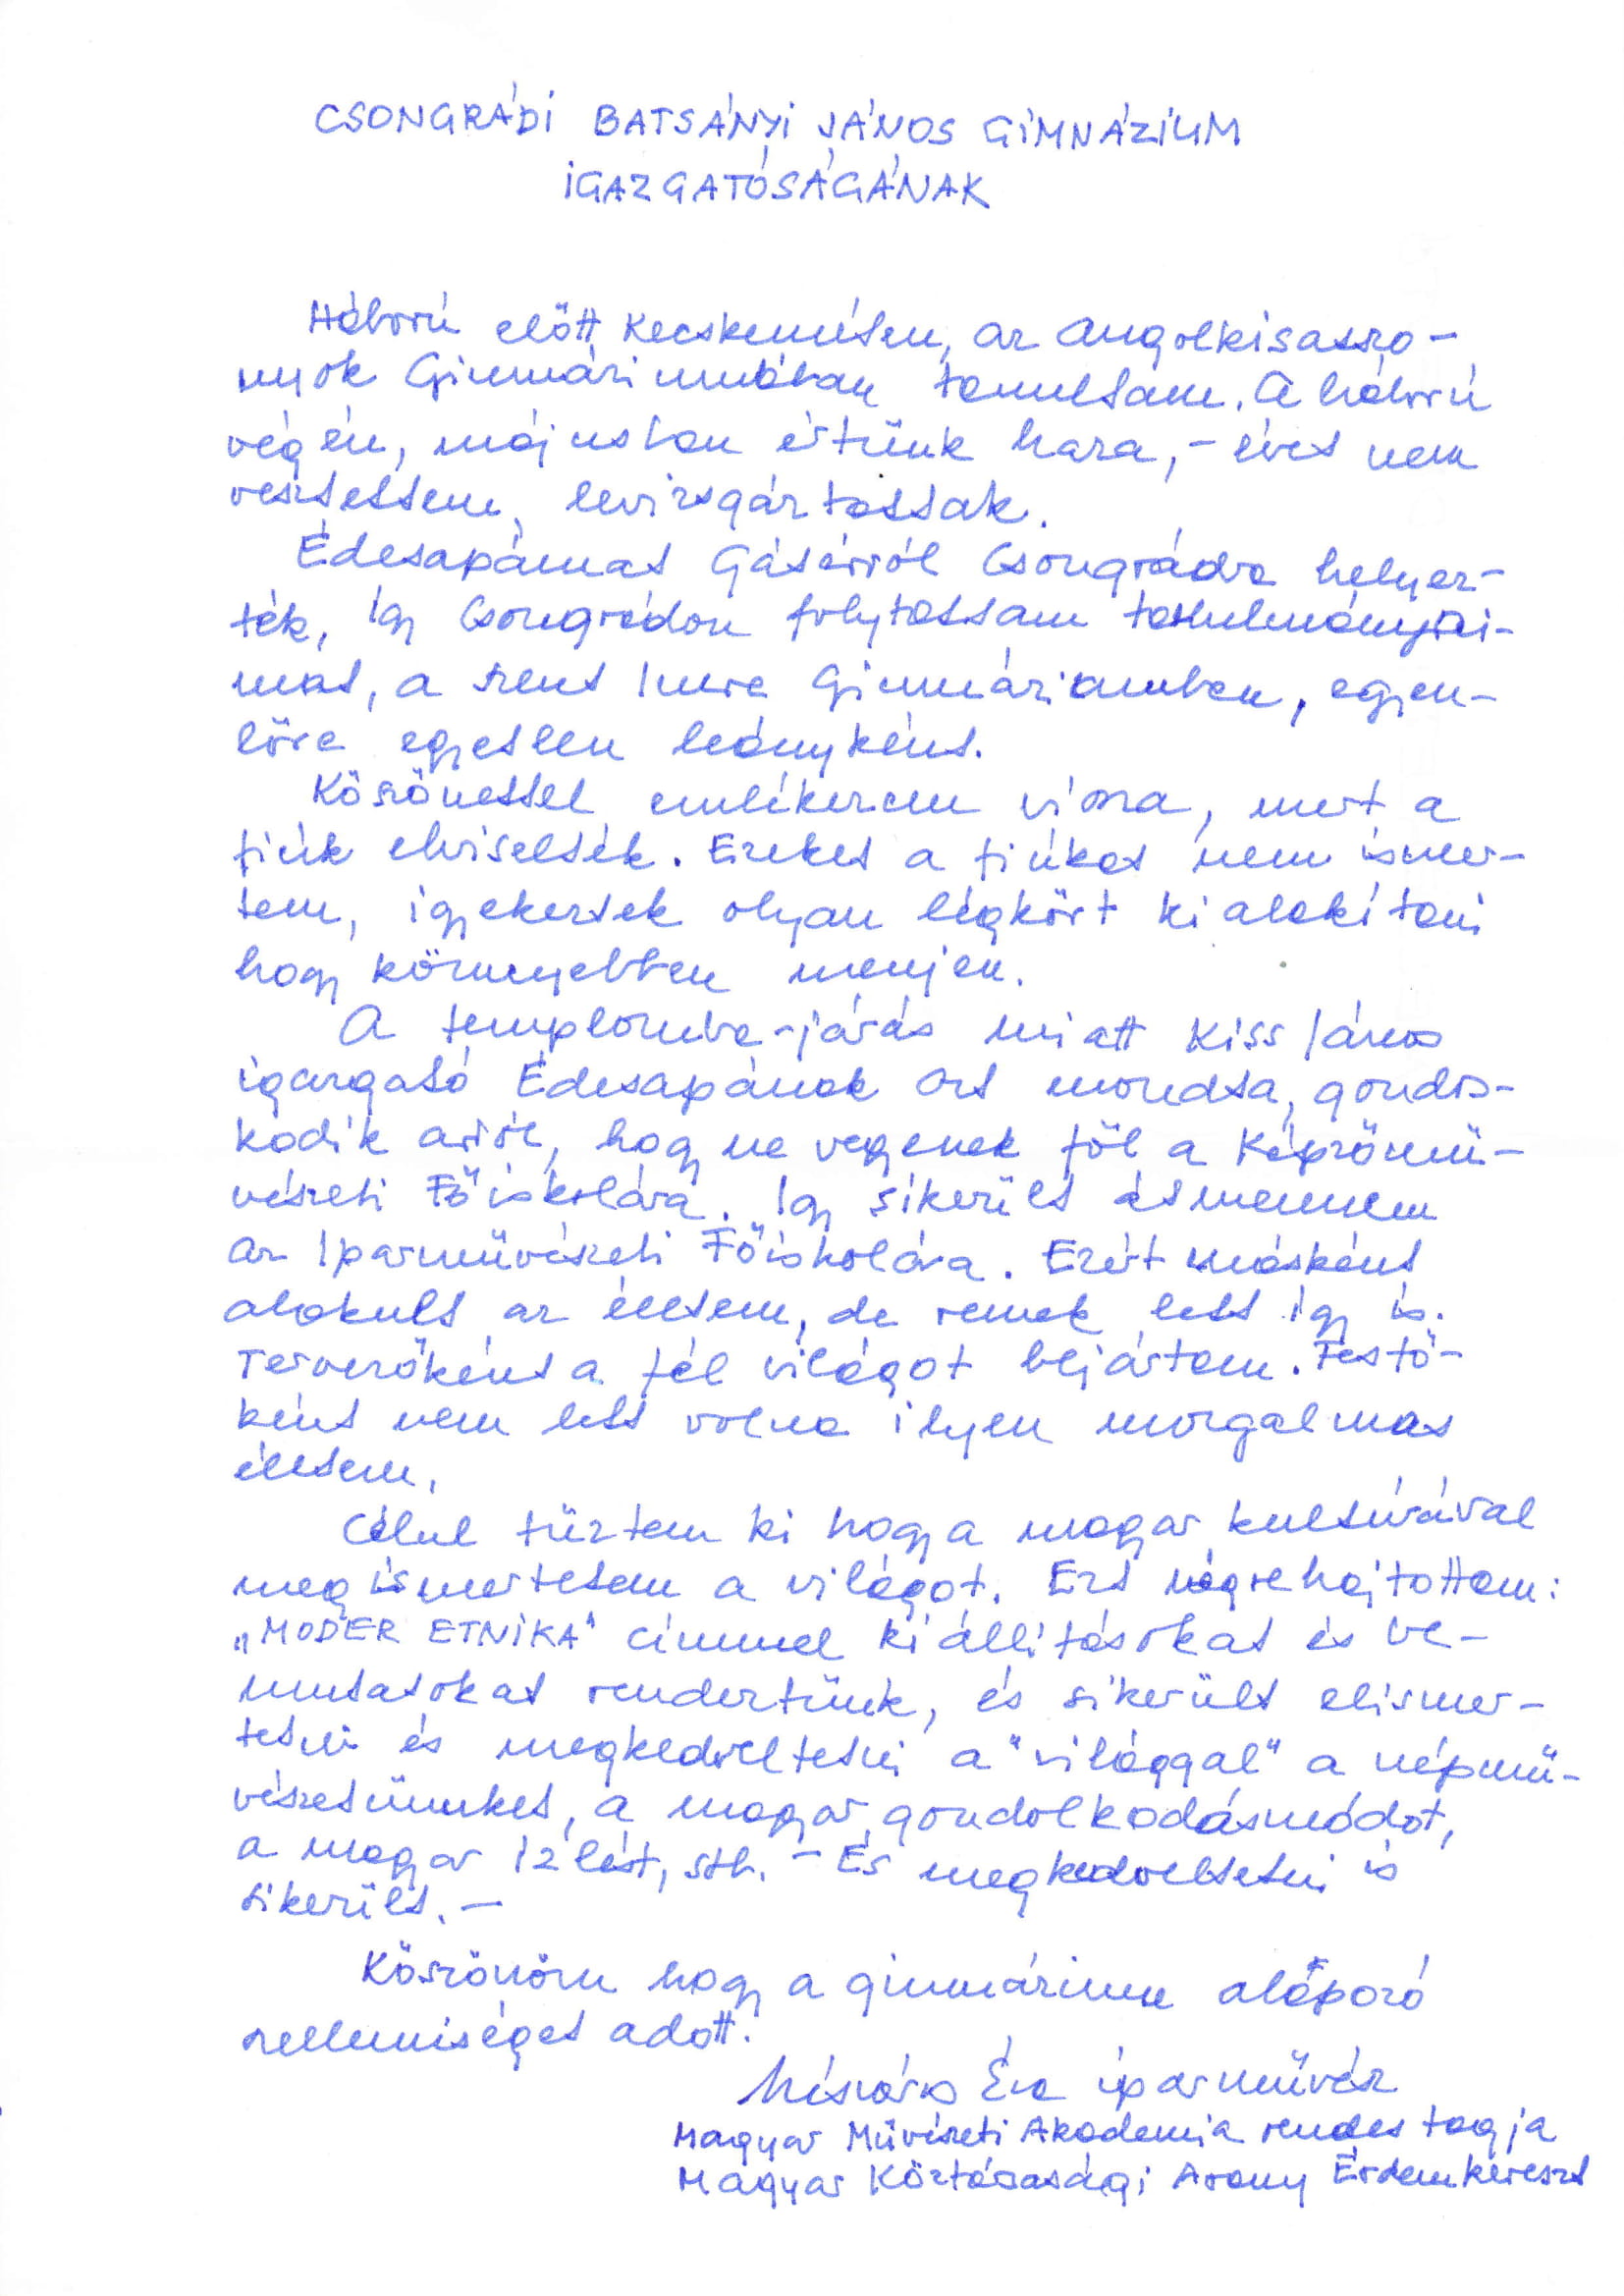 CSONGRÁDI BATSÁNYI JÁNOS GIMNÁZIUM
IGAZGATÓSÁGÁNAK
Háború előtt Kecskeméten, az Angolkisasszo-
nyok Gimnáziumában tanultam. A háború
végén, májusban értünk haza, - évet nem
vesztettem, levizsgáztattak.
Édesapámat Gátérról Csongrádra helyez-
ték, így Csongrádon folytattam tanulmányai-
mat, a Szent Imre Gimnáziumban, egyen-
lőre egyetlen leányként.
Köszönettel emlékezem vissza, mert a
fiúk elviselték. Ezeket a fiúkat nem ismer-
tem, igyekeztek olyan légkört kialakítani
hogy könnyebben menjen.
A templomba-járás miatt Kiss János
igazgató Édesapának azt mondta, gondos-
kodik arról, hogy ne vegyenek föl a Képzőmű-
vészeti Főiskolára. Így sikerült átmennem
az Iparművészeti Főiskolára. Ezért másként
alakult az életem, de remek lett így is.
Tervezőként a fél világot bejártam. Festő-
ként nem lett volna ilyen mozgalmas
életem.
Célul tűztem ki hogy a magyar kultúrával
megismertetem a világot. Ezt végrehajtottam:
„MODER ETNIKA" címmel kiállításokat és be-
mutatokat rendeztünk, és sikerült elismer-
tetni és megkedveltetni a "világgal" a népmű-
vészetünket, a magyar gondolkodásmódot,
a magyar izlést, stb. - És megkedveltetni is
sikerült. -
Köszönöm hogy a gimnázium alapozó
szellemiséget adott.
Mészáros Éva iparművész
Magyar Művészeti Akademia rendes tagja
Magyar Köztársasági Arany Érdemkereszt